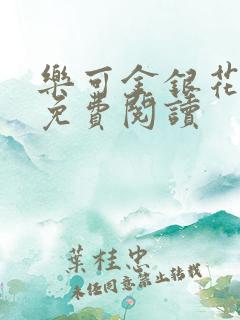 樂可金銀花
免費閱讀
葉桂忠
未經同意禁止轉載